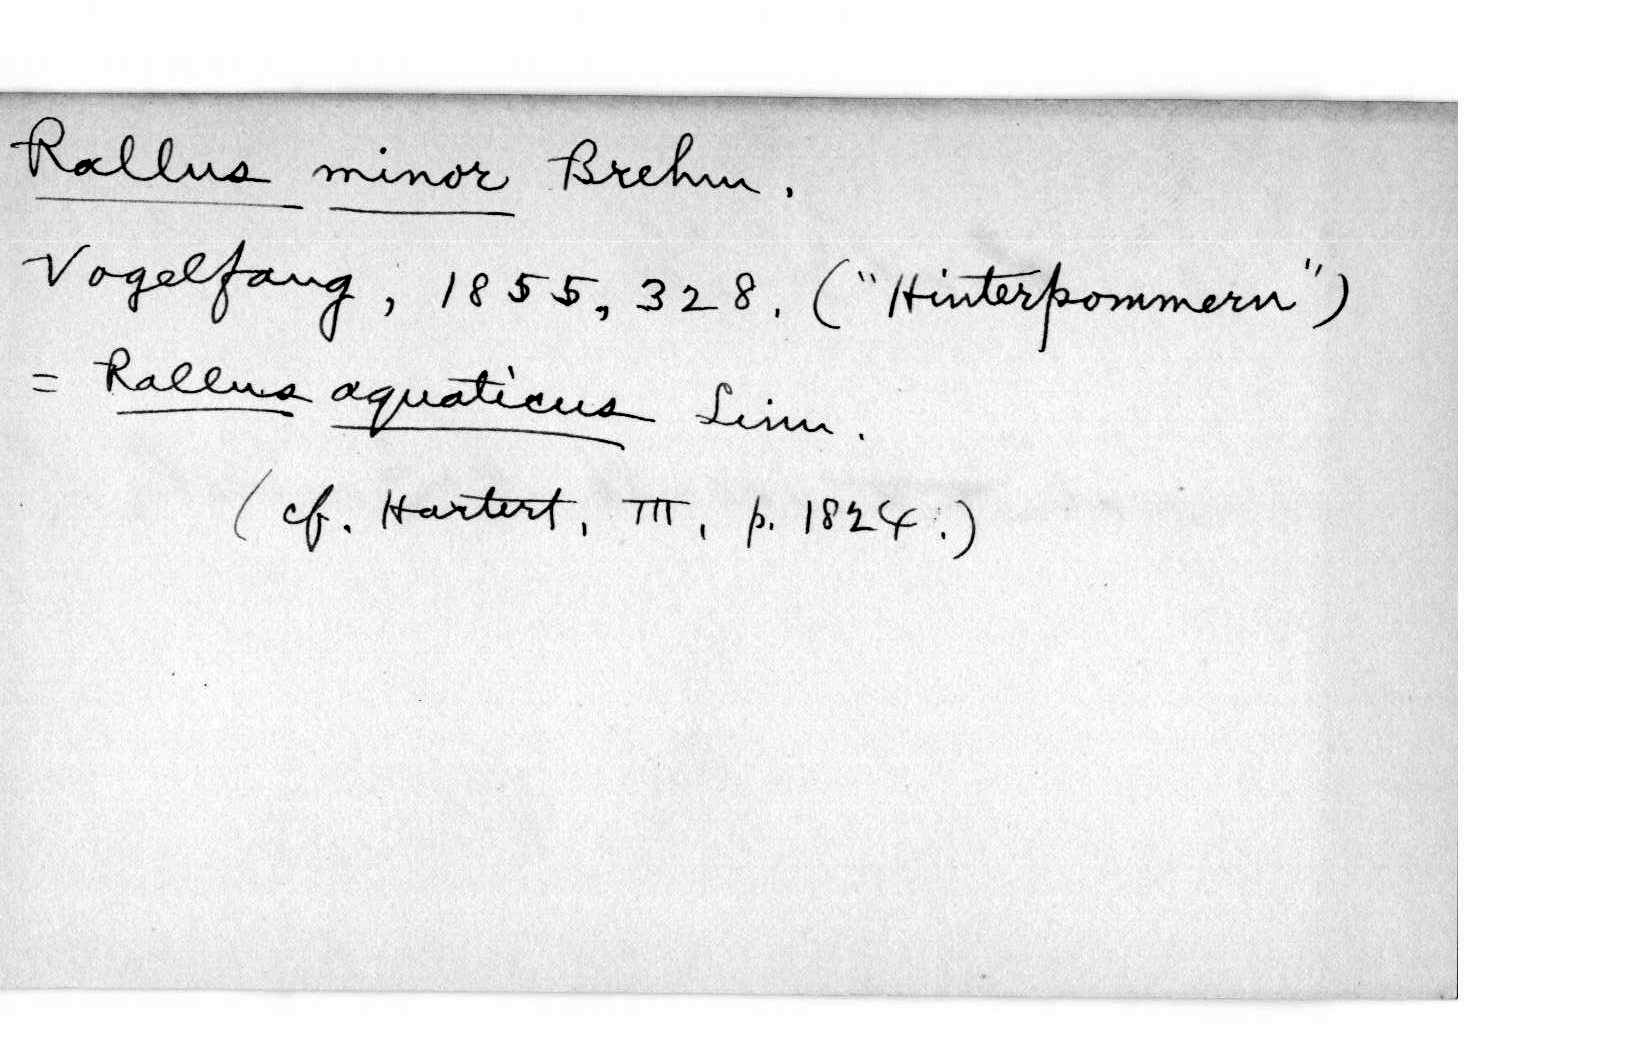 Rallus minor Brehm.
Vogelfang, 1855, 328. ("Hinterpommern")
= Rallus aquaticus Linn.
(cf. Hartert, III, p. 1824.)